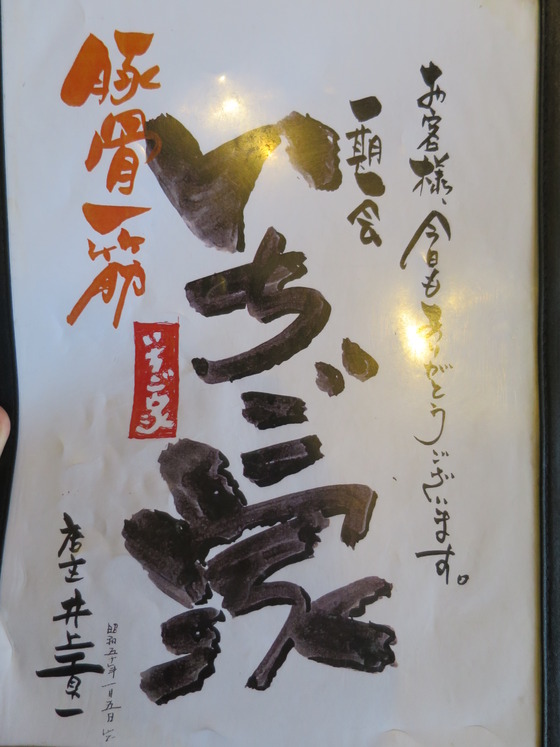 お客様、今日もありがとうございます。
一期一会
いちご家
豚骨一筋
いちご家
店主 井上
昭和五十年一月五日